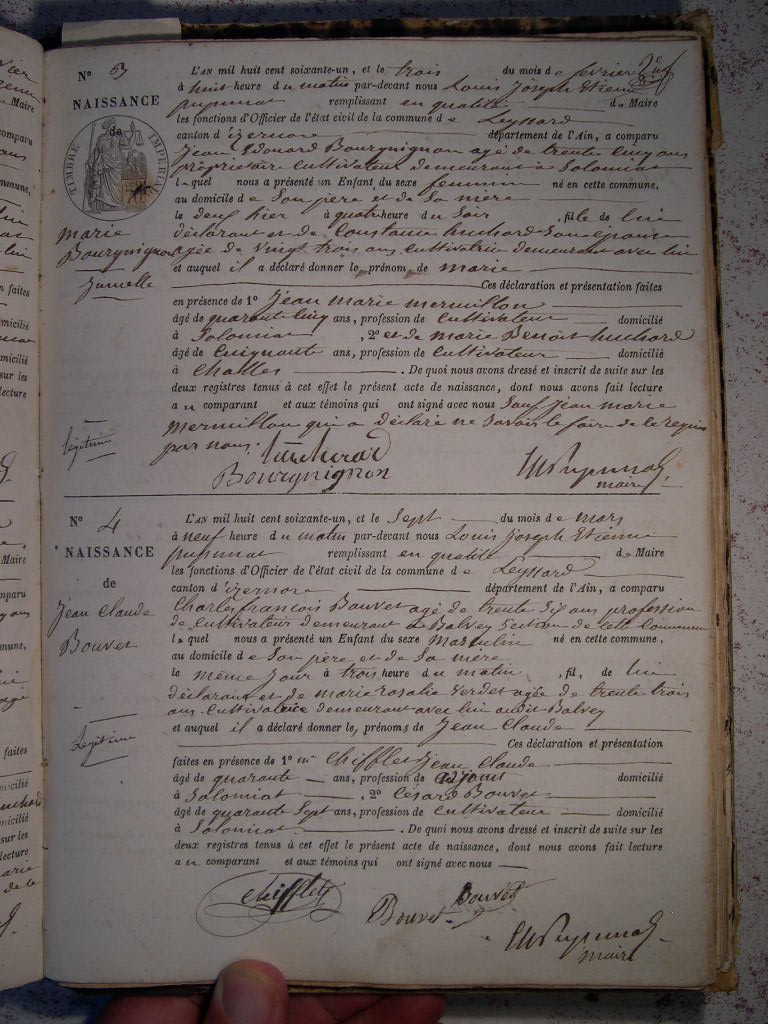 N° 3
NAISSANCE
de
TIMBRE IMPERIAL
marie
Bourguignon
Jumelle
légitime
L'AN mil huit cent soixante-un, et le trois du mois de février
à huit heure du matin par-devant nous Louis Joseph Etienne
puysunat remplissant en qualité de Maire
les fonctions d'Officier de l'état civil de la commune de Leyssard
canton d'izernore département de l'Ain, a comparu
Jean Edouard Bourguignon agé de trente cinq ans
propriétaire cultivateur demeurant à Solomiat
lequel nous a présenté un Enfant du sexe féminin né en cette commune,
au domicile de Son père et de Sa mère
le deux hier à quatre heure du Soir , fille de lui
déclarant et de Constance huchard Son épouse
agée de vingt trois ans cultivatrice demeurant avec lui
et auquel il a déclaré donner le prénom de marie
Ces déclaration et présentation faites
en présence de 1° Jean marie mermillon
âgé de quarante cinq ans, profession de Cultivateur domicilié
à Solomiat , 2° et de marie Benoit huchard
âgé de Cinquante ans, profession de Cultivateur domicilié
à Challes . De quoi nous avons dressé et inscrit de suite sur les
deux registres tenus à cet effet le présent acte de naissance, dont nous avons fait lecture
au comparant et aux témoins qui ont signé avec nous Sauf Jean marie
mermillon qui a déclaré ne Savoir le faire de ce requis
par nous.
huchard
Bourguignon
maire
N° 4
NAISSANCE
de
Jean Claude
Bouvet
Légitime
L'AN mil huit cent soixante-un, et le Sept du mois de mars
à neuf heure du matin par-devant nous Louis Joseph Etienne
puysunat remplissant en qualité de Maire
les fonctions d'Officier de l'état civil de la commune de Leyssard
canton d'izernore département de l'Ain, a comparu
Charles francois Bouvet agé de trente Six ans profession
de cultivateur demeurant à Balvay Section de cette Commune
lequel nous a présenté un Enfant du sexe Masculin né en cette commune,
au domicile de Son père et de Sa mère
le même Jour à trois heure du matin , fil, de lui
déclarant et de marie rosalie Verdet agée de trente trois
ans cultivatrice demeurant avec lui audit Balvey
et auquel il a déclaré donner le, prénom, de Jean Claude
Ces déclaration et présentation
faites en présence de 1° mr Chifflet Jean Claude
âgé de quarante ans, profession de adjoint domicilié
à Solomiat , 2° César Bouvet
âgé de quarante Sept ans, profession de Cultivateur domicilié
à Solomiat . De quoi nous avons dressé et inscrit de suite sur les
deux registres tenus à cet effet le présent acte de naissance, dont nous avons fait lecture
au comparant et aux témoins qui ont signé avec nous
chifflet
Bouvet
Bouvet
maire